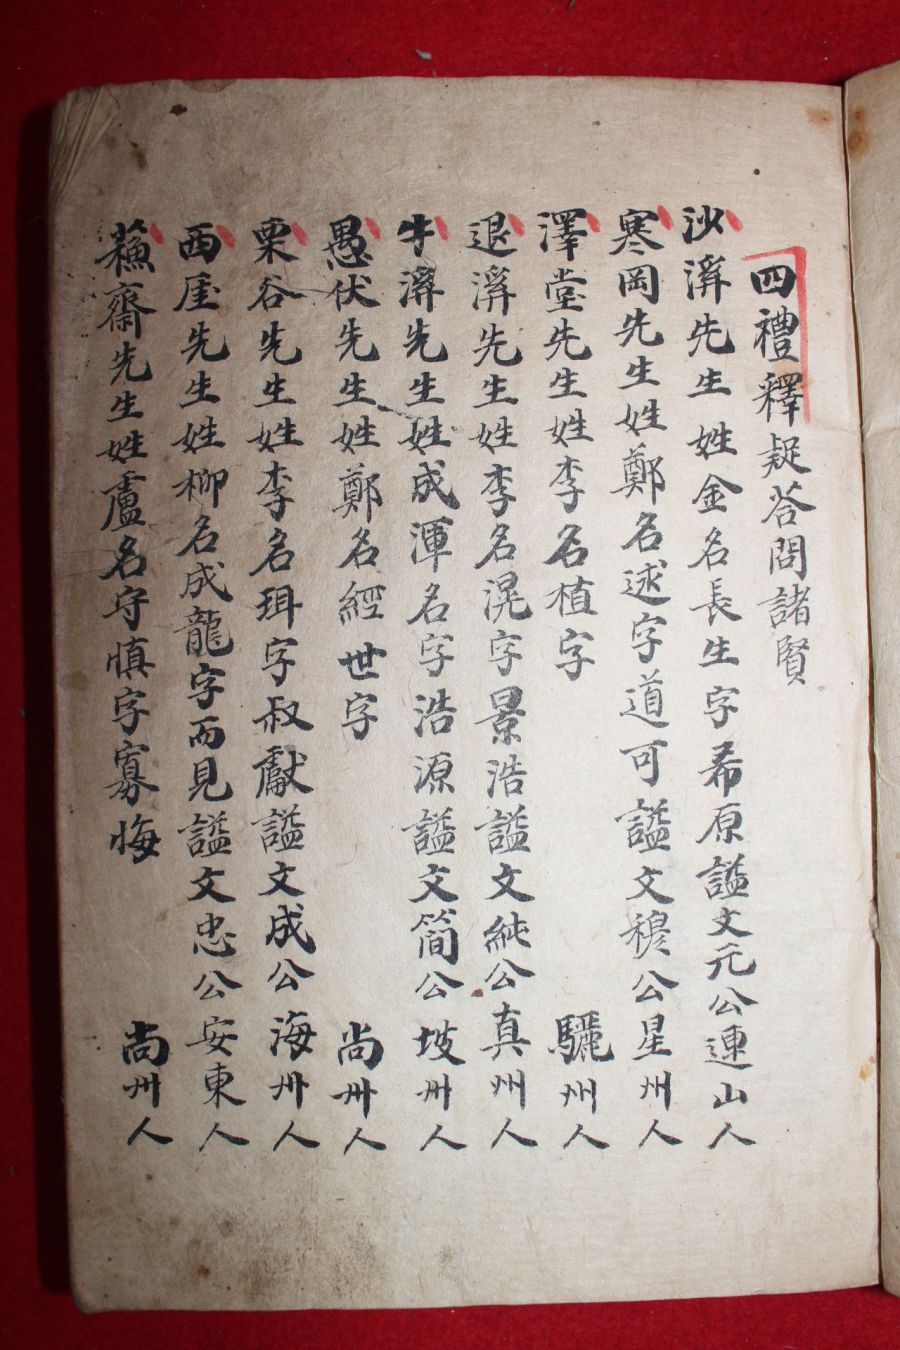 四禮釋疑荅問諸賢
沙溪先生姓金名長生字希原諡文元公連山人
寒岡先生姓鄭名逑字道可諡文穆公星州人
澤堂先生姓李名植字 驪州人
退溪先生姓李名滉字景浩諡文純公真州人
牛溪先生姓成渾名字浩源諡文簡公坡州人
愚伏先生姓鄭名經世字 尚州人
栗谷先生姓李名珥字叔獻諡文成公海州人
西厓先生姓柳名成龍字而見諡文忠公安東人
蘓齋先生姓盧名守慎字寡悔 尚州人